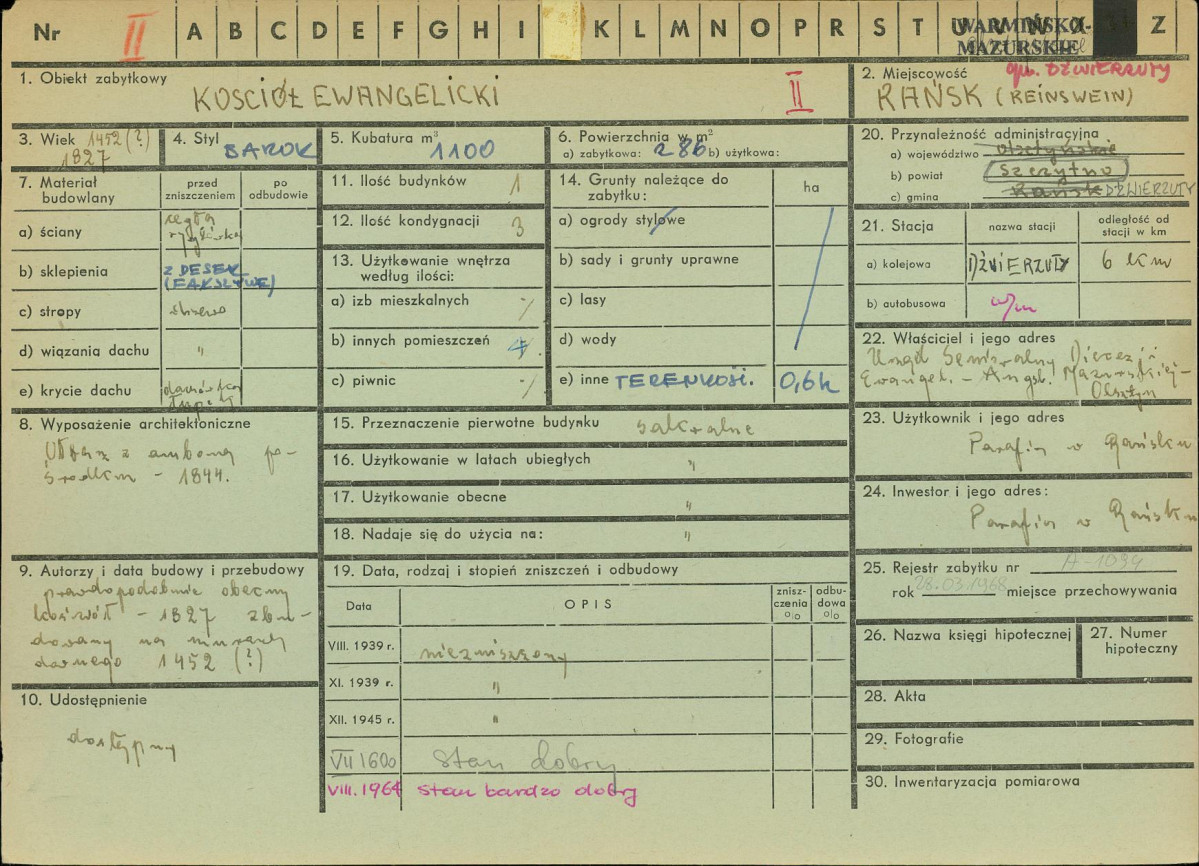 Nr II A B C D E F G H I K L M N O P R S T U Z
WARMIŃSKO-
MAZURSKIE
1. Obiekt zabytkowy
KOSCIÓŁ EWANGELICKI II
2. Miejscowość gm. DŹWIERZUTY
RAŃSK (REINSWEIN)
3. Wiek 1452 (?)
1827
4. Styl BAROK
5. Kubatura m³
1100
6. Powierzchnia w m²
a) zabytkowa: 286 b) użytkowa:
20. Przynależność administracyjna
a) województwo olsztyńskie
b) powiat Szczytno
c) gmina Rańsk DŹWIERZUTY
7. Materiał budowlany
przed zniszczeniem
po odbudowie
a) ściany cegła
b) sklepienia Z DESEK
(FAŁSZYWE)
c) stropy drewno
d) wiązania dachu "
e) krycie dachu dachówka
11. Ilość budynków 1
12. Ilość kondygnacji 3
13. Użytkowanie wnętrza
według ilości:
a) izb mieszkalnych -/
b) innych pomieszczeń 4
c) piwnic -/
14. Grunty należące do
zabytku:
ha
a) ogrody stylowe
b) sady i grunty uprawne
c) lasy
d) wody
e) inne TEREN KOŚC. 0,6h
21. Stacja
nazwa stacji
odległość od
stacji w km
a) kolejowa DŹWIERZUTY 6 km
b) autobusowa w/m
22. Właściciel i jego adres
Urząd Senioralny Diecezji
Ewangel. - Augsb. Mazurskiej -
Olsztyn
8. Wyposażenie architektoniczne
Ołtarz z amboną po-
środku - 1844.
15. Przeznaczenie pierwotne budynku sakralne
16. Użytkowanie w latach ubiegłych "
17. Użytkowanie obecne "
18. Nadaje się do użycia na: "
23. Użytkownik i jego adres
Parafia w Rańsku
24. Inwestor i jego adres:
Parafia w Rańsku
9. Autorzy i data budowy i przebudowy
prawdopodobnie obecny
kościół - 1827 zbu-
dowany na murach
dawnego 1452 (?)
19. Data, rodzaj i stopień zniszczeń i odbudowy
Data
OPIS
znisz-
czenia
%
odbu-
dowa
%
VIII. 1939 r. niezniszczony
XI. 1939 r. "
XII. 1945 r. "
VII 1960 stan dobry
VIII. 1964 stan bardzo dobry
25. Rejestr zabytku nr A-1094
rok 28.03.1968 miejsce przechowywania
26. Nazwa księgi hipotecznej
27. Numer
hipoteczny
10. Udostępnienie
dostępny
28. Akta
29. Fotografie
30. Inwentaryzacja pomiarowa